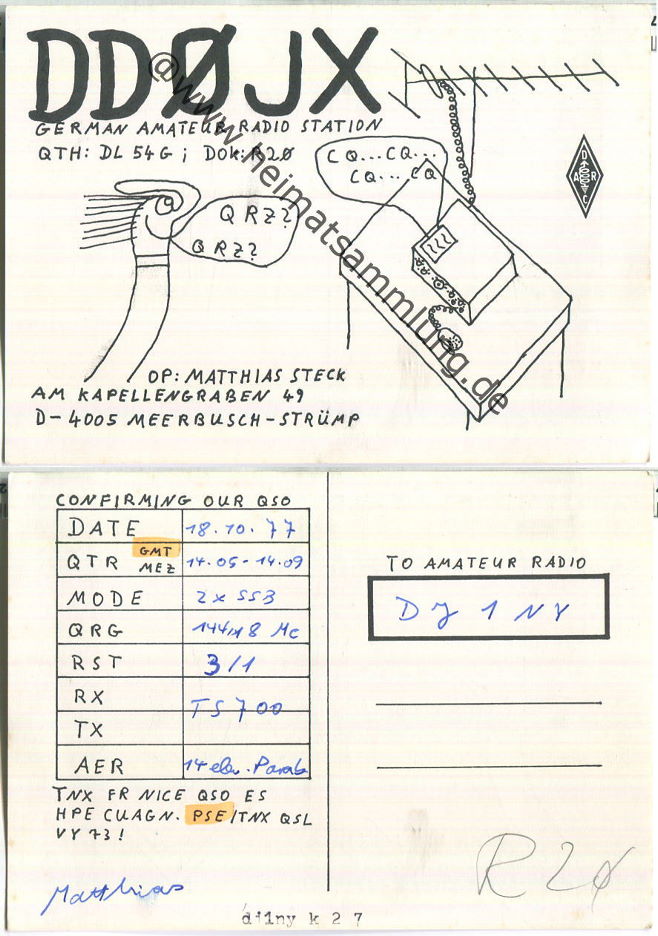 DDØJX
GERMAN AMATEUR RADIO STATION
QTH: DL 54G ; DOK: R2Ø
CQ...CQ...
CQ...CQ
D
A R
C
QRZ?
QRZ?
OP: MATTHIAS STECK
AM KAPELLENGRABEN 49
D-4005 MEERBUSCH-STRÜMP
@www.heimatsammlung.de
CONFIRMING OUR QSO
DATE 18.10.77
QTR GMT MEZ 14.05-14.09
MODE 2x SSB
QRG Mc
RST 3/1
RX
TS 700
TX
AER 14 ele. Parab
TNX FR NICE QSO ES
HPE CUAGN. PSE/TNX QSL
VY 73!
Matthias
TO AMATEUR RADIO
DJ 1 NY
R2Ø
dj1ny k 2 7